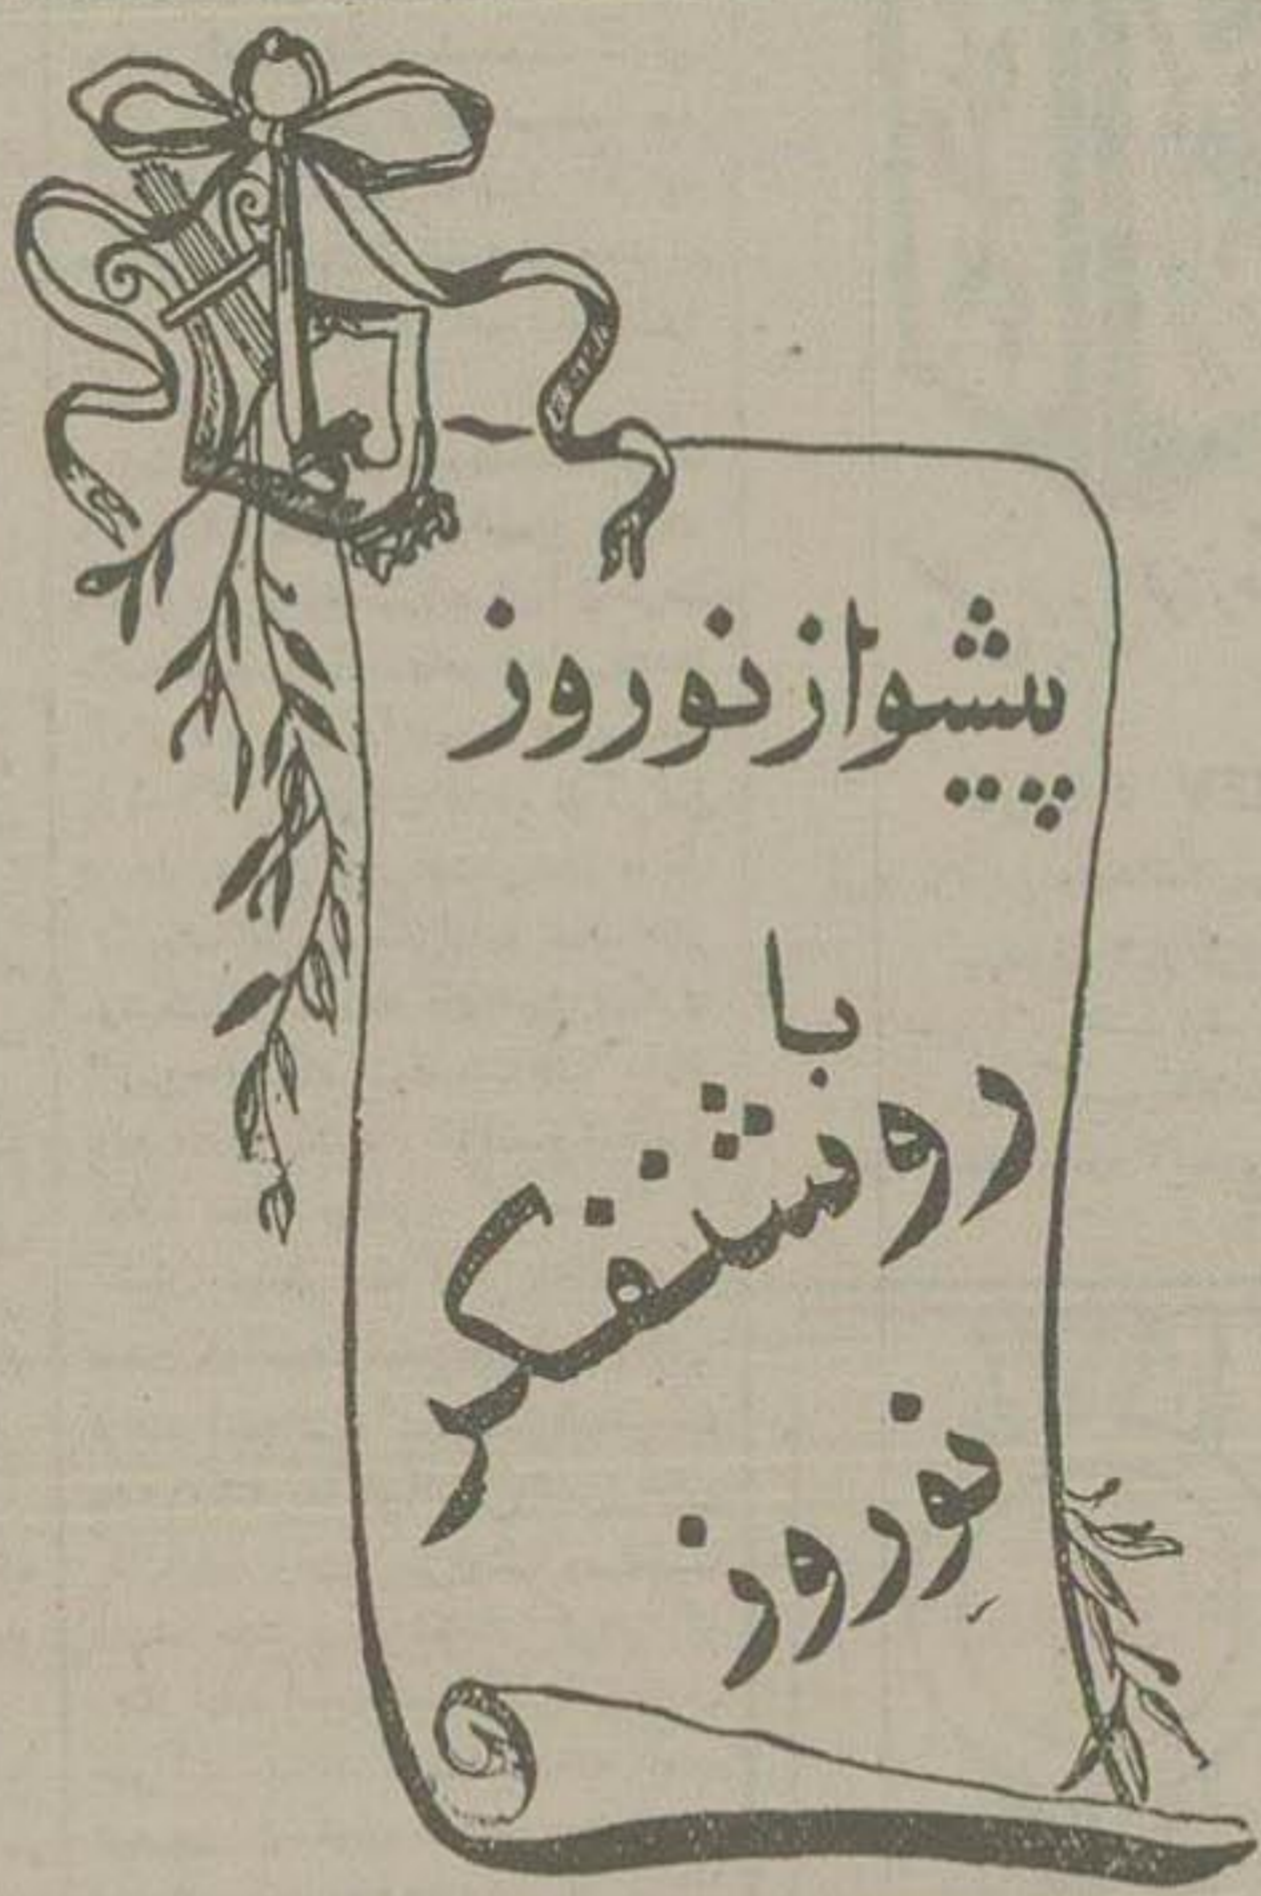 پیشواز نوروز
با
روشنفکر
نوروز